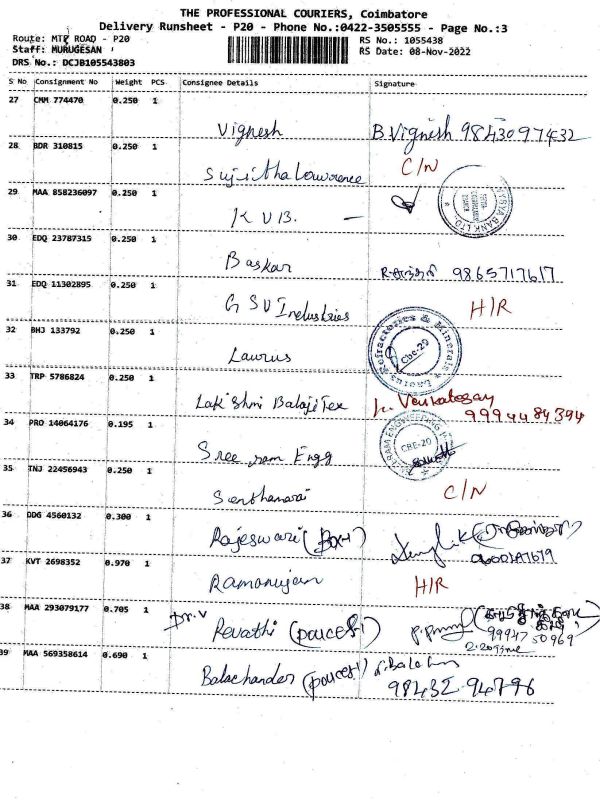 THE PROFESSIONAL COURIERS, Coimbatore
Delivery Runsheet - P20 - Phone No.:0422-3505555 - Page No.:3
Route: MTP ROAD - P20
RS No.: 1055438
Staff: MURUGESAN
RS Date: 08-Nov-2022
DRS No.: DCJB105543803
S No Consignment No Weight PCS Consignee Details Signature
27 CMM 774470 0.250 1
Vignesh B.Vignesh 9843097432
28 BDR 310815 0.250 1
Sujitha Lawrence C/N
29 MAA 858236097 0.250 1
K U B. —
30 EDQ 23787315 0.250 1
Baskar 9865717617
31 EDQ 11302895 0.250 1
G S V Industries H/R
32 BHJ 133792 0.250 1
Laurus
Refractories & Minerals
Cbe-20
33 TRP 5786824 0.250 1
Lakshmi Balaji Tex Venkatesan
9994484394
34 PRO 14064176 0.195 1
Sree ram Engg CBE-20
35 TNJ 22456943 0.250 1
C/N
36 DDG 4560132 0.300 1
Rajeswari (Box-1)
37 KVT 2698352 0.970 1
Ramanujan H/R
38 MAA 293079177 0.705 1
Dr.V Revathi
9994750969
39 MAA 569358614 0.690 1
Balachander
98432 94796